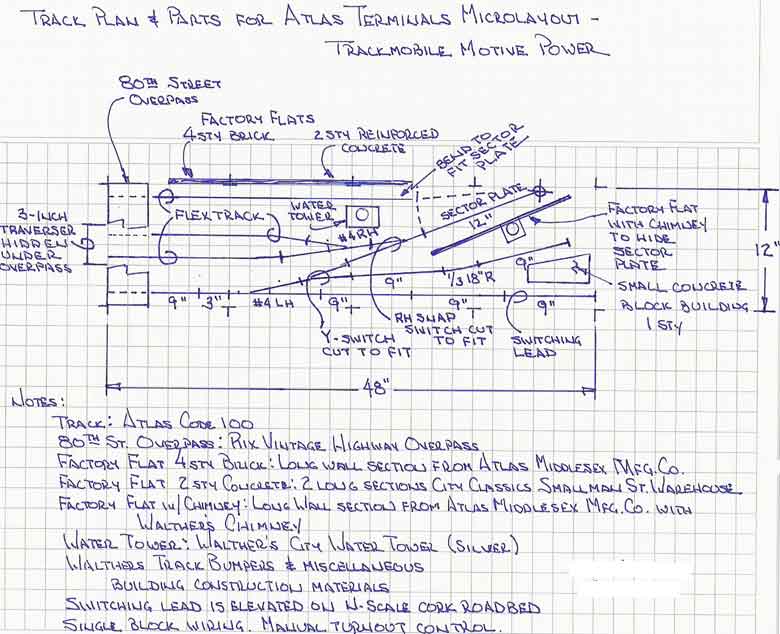 TRACK PLAN & PARTS FOR ATLAS TERMINALS MICROLAYOUT -
TRACKMOBILE MOTIVE POWER
80TH STREET
OVERPASS
FACTORY FLATS
4 STY BRICK
2 STY REINFORCED
CONCRETE
BEND TO
FIT SECTOR
PLATE
SECTOR PLATE
12"
3-INCH
TRAVERSER
HIDDEN
UNDER
OVERPASS
FLEXTRACK
WATER
TOWER
#4 RH
FACTORY FLAT
WITH CHIMNEY
TO HIDE
SECTOR
PLATE
12"
9"
3"
#4 LH
9"
9"
1/3 18"R
9"
9"
9"
SMALL CONCRETE
BLOCK BUILDING
1 STY
Y-SWITCH
CUT TO FIT
RH SNAP
SWITCH CUT
TO FIT
SWITCHING
LEAD
48"
NOTES:
TRACK: ATLAS CODE 100
80TH ST. OVERPASS: RIX VINTAGE HIGHWAY OVERPASS
FACTORY FLAT 4 STY BRICK: LONG WALL SECTION FROM ATLAS MIDDLESEX MFG. CO.
FACTORY FLAT 2 STY CONCRETE: 2 LONG SECTIONS CITY CLASSICS SMALLMAN ST. WAREHOUSE
FACTORY FLAT W/ CHIMNEY: LONG WALL SECTION FROM ATLAS MIDDLESEX MFG. CO. WITH
WALTHER'S CHIMNEY
WATER TOWER: WALTHER'S CITY WATER TOWER (SILVER)
WALTHERS TRACK BUMPERS & MISCELLANEOUS
BUILDING CONSTRUCTION MATERIALS
SWITCHING LEAD IS ELEVATED ON N-SCALE CORK ROADBED
SINGLE BLOCK WIRING. MANUAL TURNOUT CONTROL.